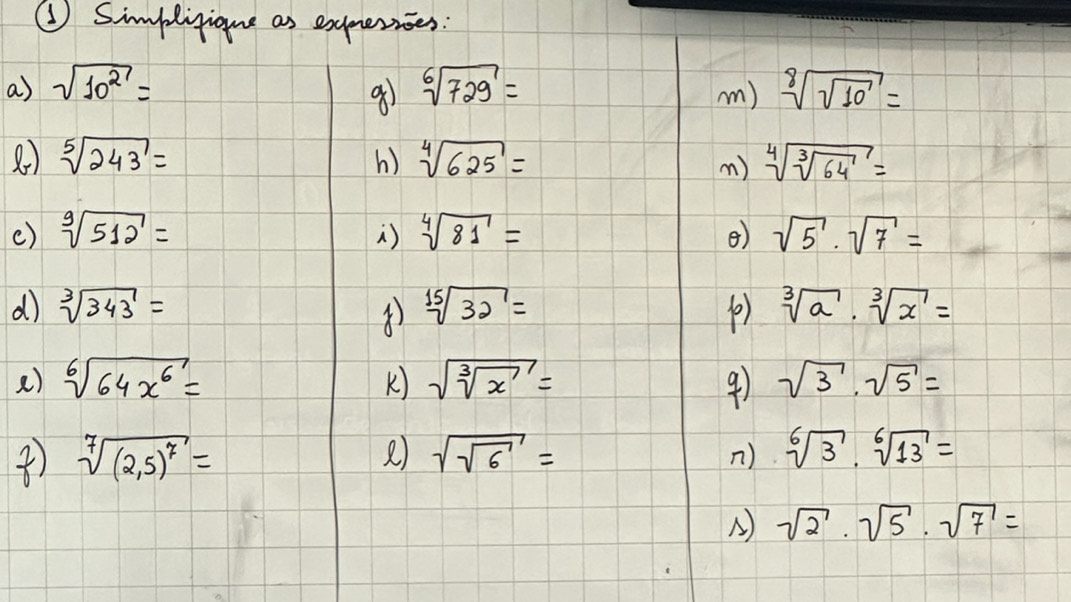 ① Simplifique as expressões:
a) √10² =
b) ⁵√243 =
c) ⁹√512 =
d) ³√343 =
e) ⁶√64x⁶ =
f) ⁷√(2,5)⁷ =
g) ⁶√729 =
h) ⁴√625 =
i) ⁴√81 =
j) ¹⁵√32 =
k) √³√x =
l) √√6 =
m) ⁸√√10 =
n) ⁴√³√64 =
o) √5 . √7 =
p) ³√a . ³√x =
q) √3 . √5 =
r) ⁶√3 . ⁶√13 =
s) √2 . √5 . √7 =